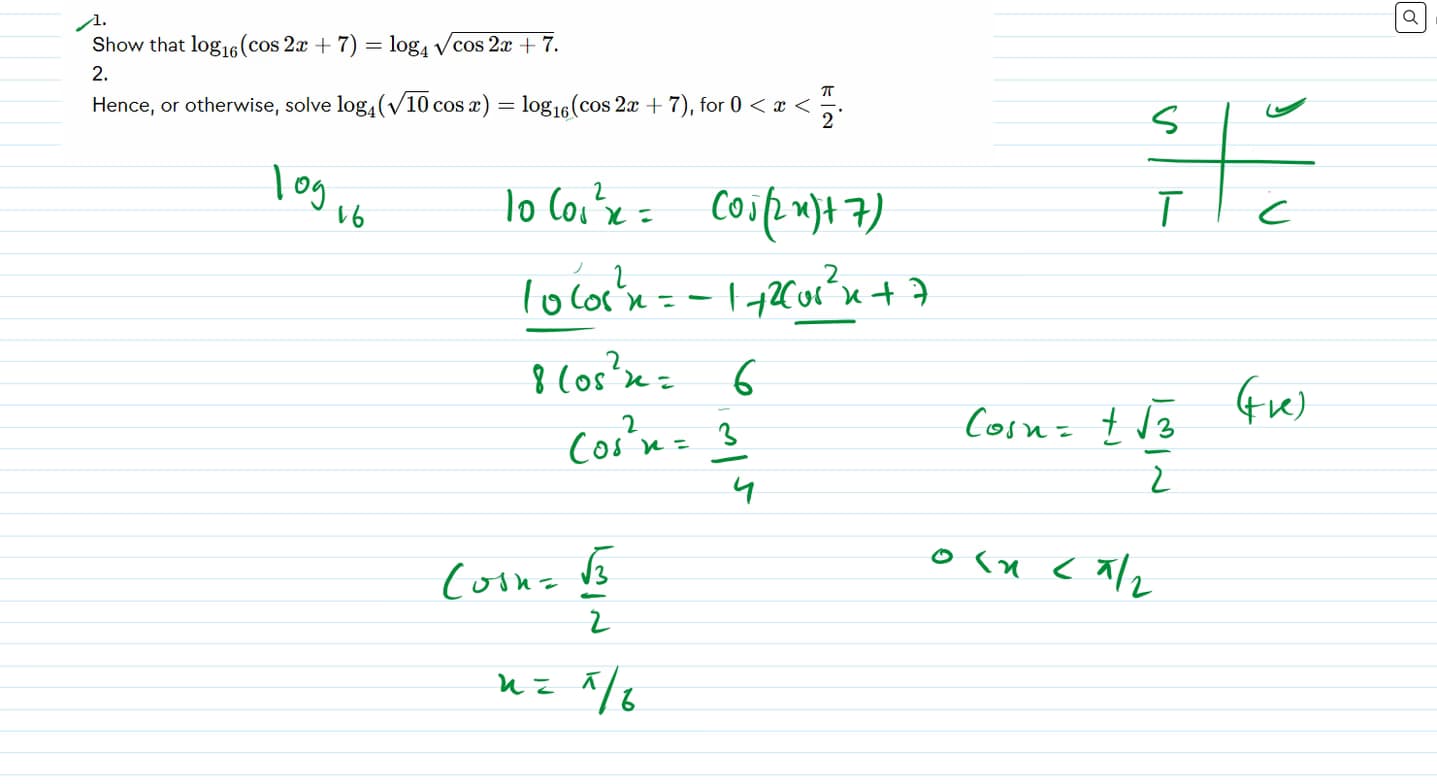 1.
Show that log₁₆(cos 2x + 7) = log₄ √(cos 2x + 7).
2.
Hence, or otherwise, solve log₄(√10 cos x) = log₁₆(cos 2x + 7), for 0 < x < π/2.
S
T C
log₁₆ 10 Cos²x = Cos(2x)+7)
10 Cos²x = -1+2Cos²x + 7
8 Cos²x = 6
Cos²x = 3/4
Cosx = ± √3/2 (+ve)
Cosx = √3/2
0 < x < π/2
x = π/6